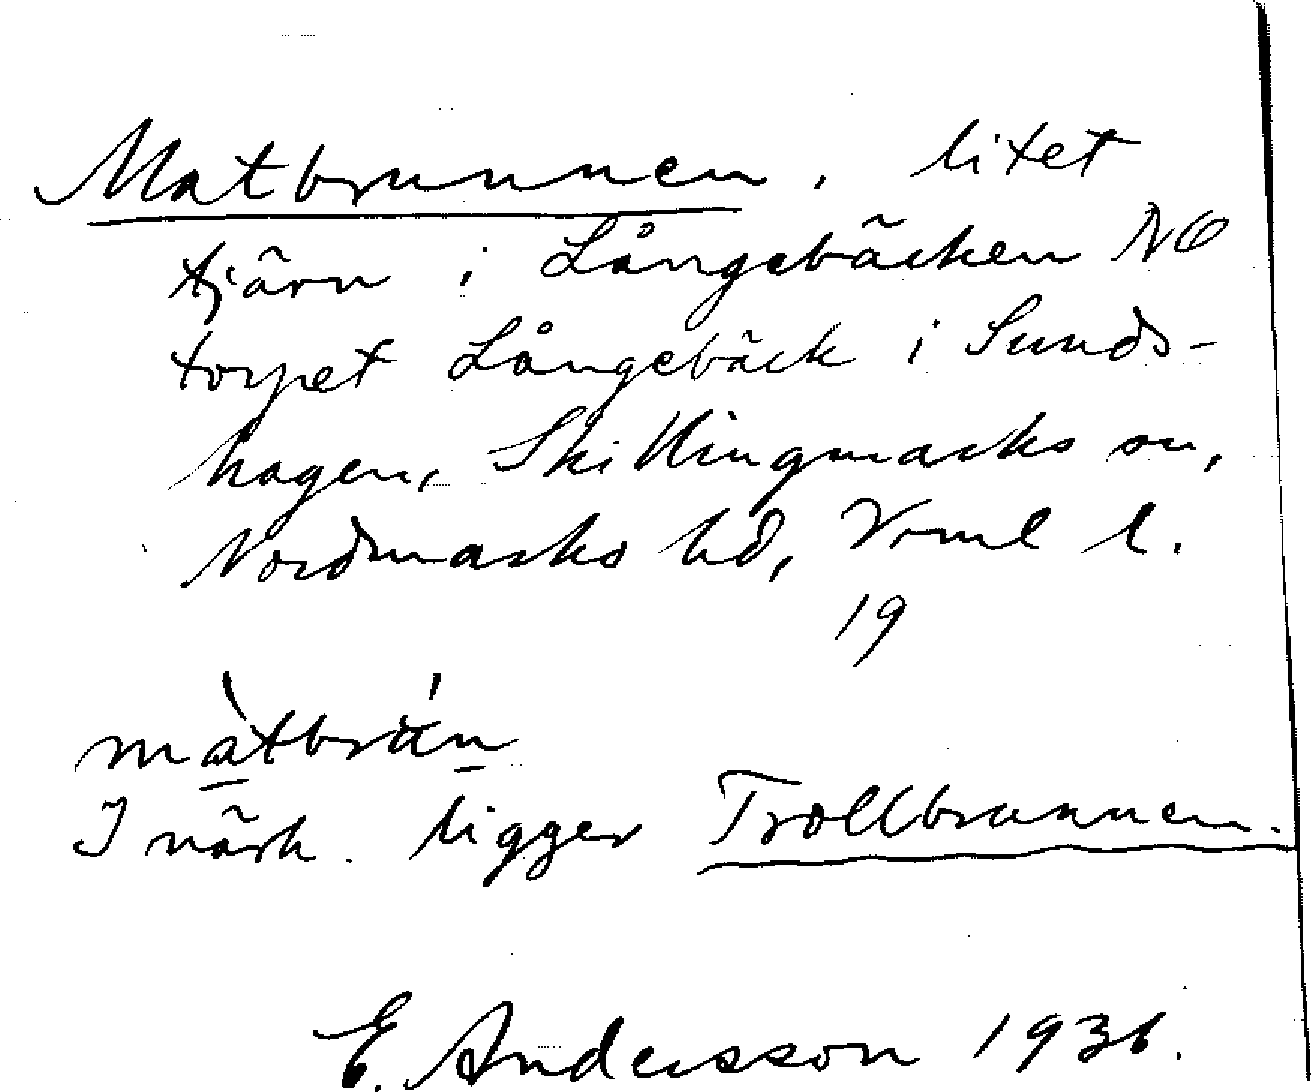 Matbrunnen, litet
tjärn i Långebäcken NO
torpet Långebäck i Sunds-
hagen, Skillingmarks sn,
Nordmarks hd, Vrml l.
19
màtbrún
I närh. ligger Trollbrunnen.
E. Andersson 1936.